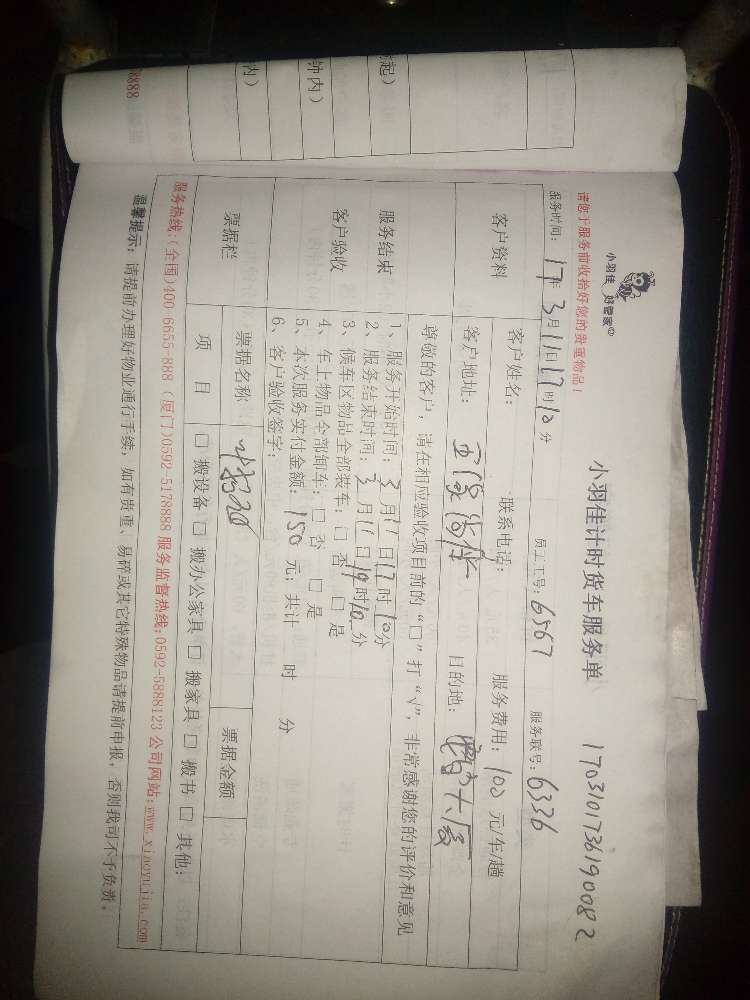 小羽佳 好管家
小羽佳计时货车服务单
1703101736190082
请您于服务前收拾好您的贵重物品！
服务时间：17年3月11日17时10分 员工工号：6567 服务联号：6336
客户资料
客户姓名： 联系电话： 服务费用：100元/车/趟
客户地址： 目的地：大厦
尊敬的客户，请在相应验收项目前的“□”打“√”，非常感谢您的评价和意见
服务结束
客户验收
1、服务开始时间：3月11日17时10分
2、服务结束时间：3月11日19时10分
3、候车区物品全部装车：□否 □是
4、车上物品全部卸车：□否 □是
5、本次服务实付金额：150元；共计 时 分
6、客户验收签字：
票据栏
票据名称： 票据金额
项 目 □搬设备 □搬办公家具 □搬家具 □搬书 □其他：
服务热线：(全国)400-6655-888 (厦门)0592-5178888 服务监督热线：0592-5888123 公司网站：www.xiaoyujia.com
温馨提示：请提前办理好物业通行手续，如有贵重、易碎或其它特殊物品请提前申报，否则我司不予负责。
起）
钟内）
内）
8888